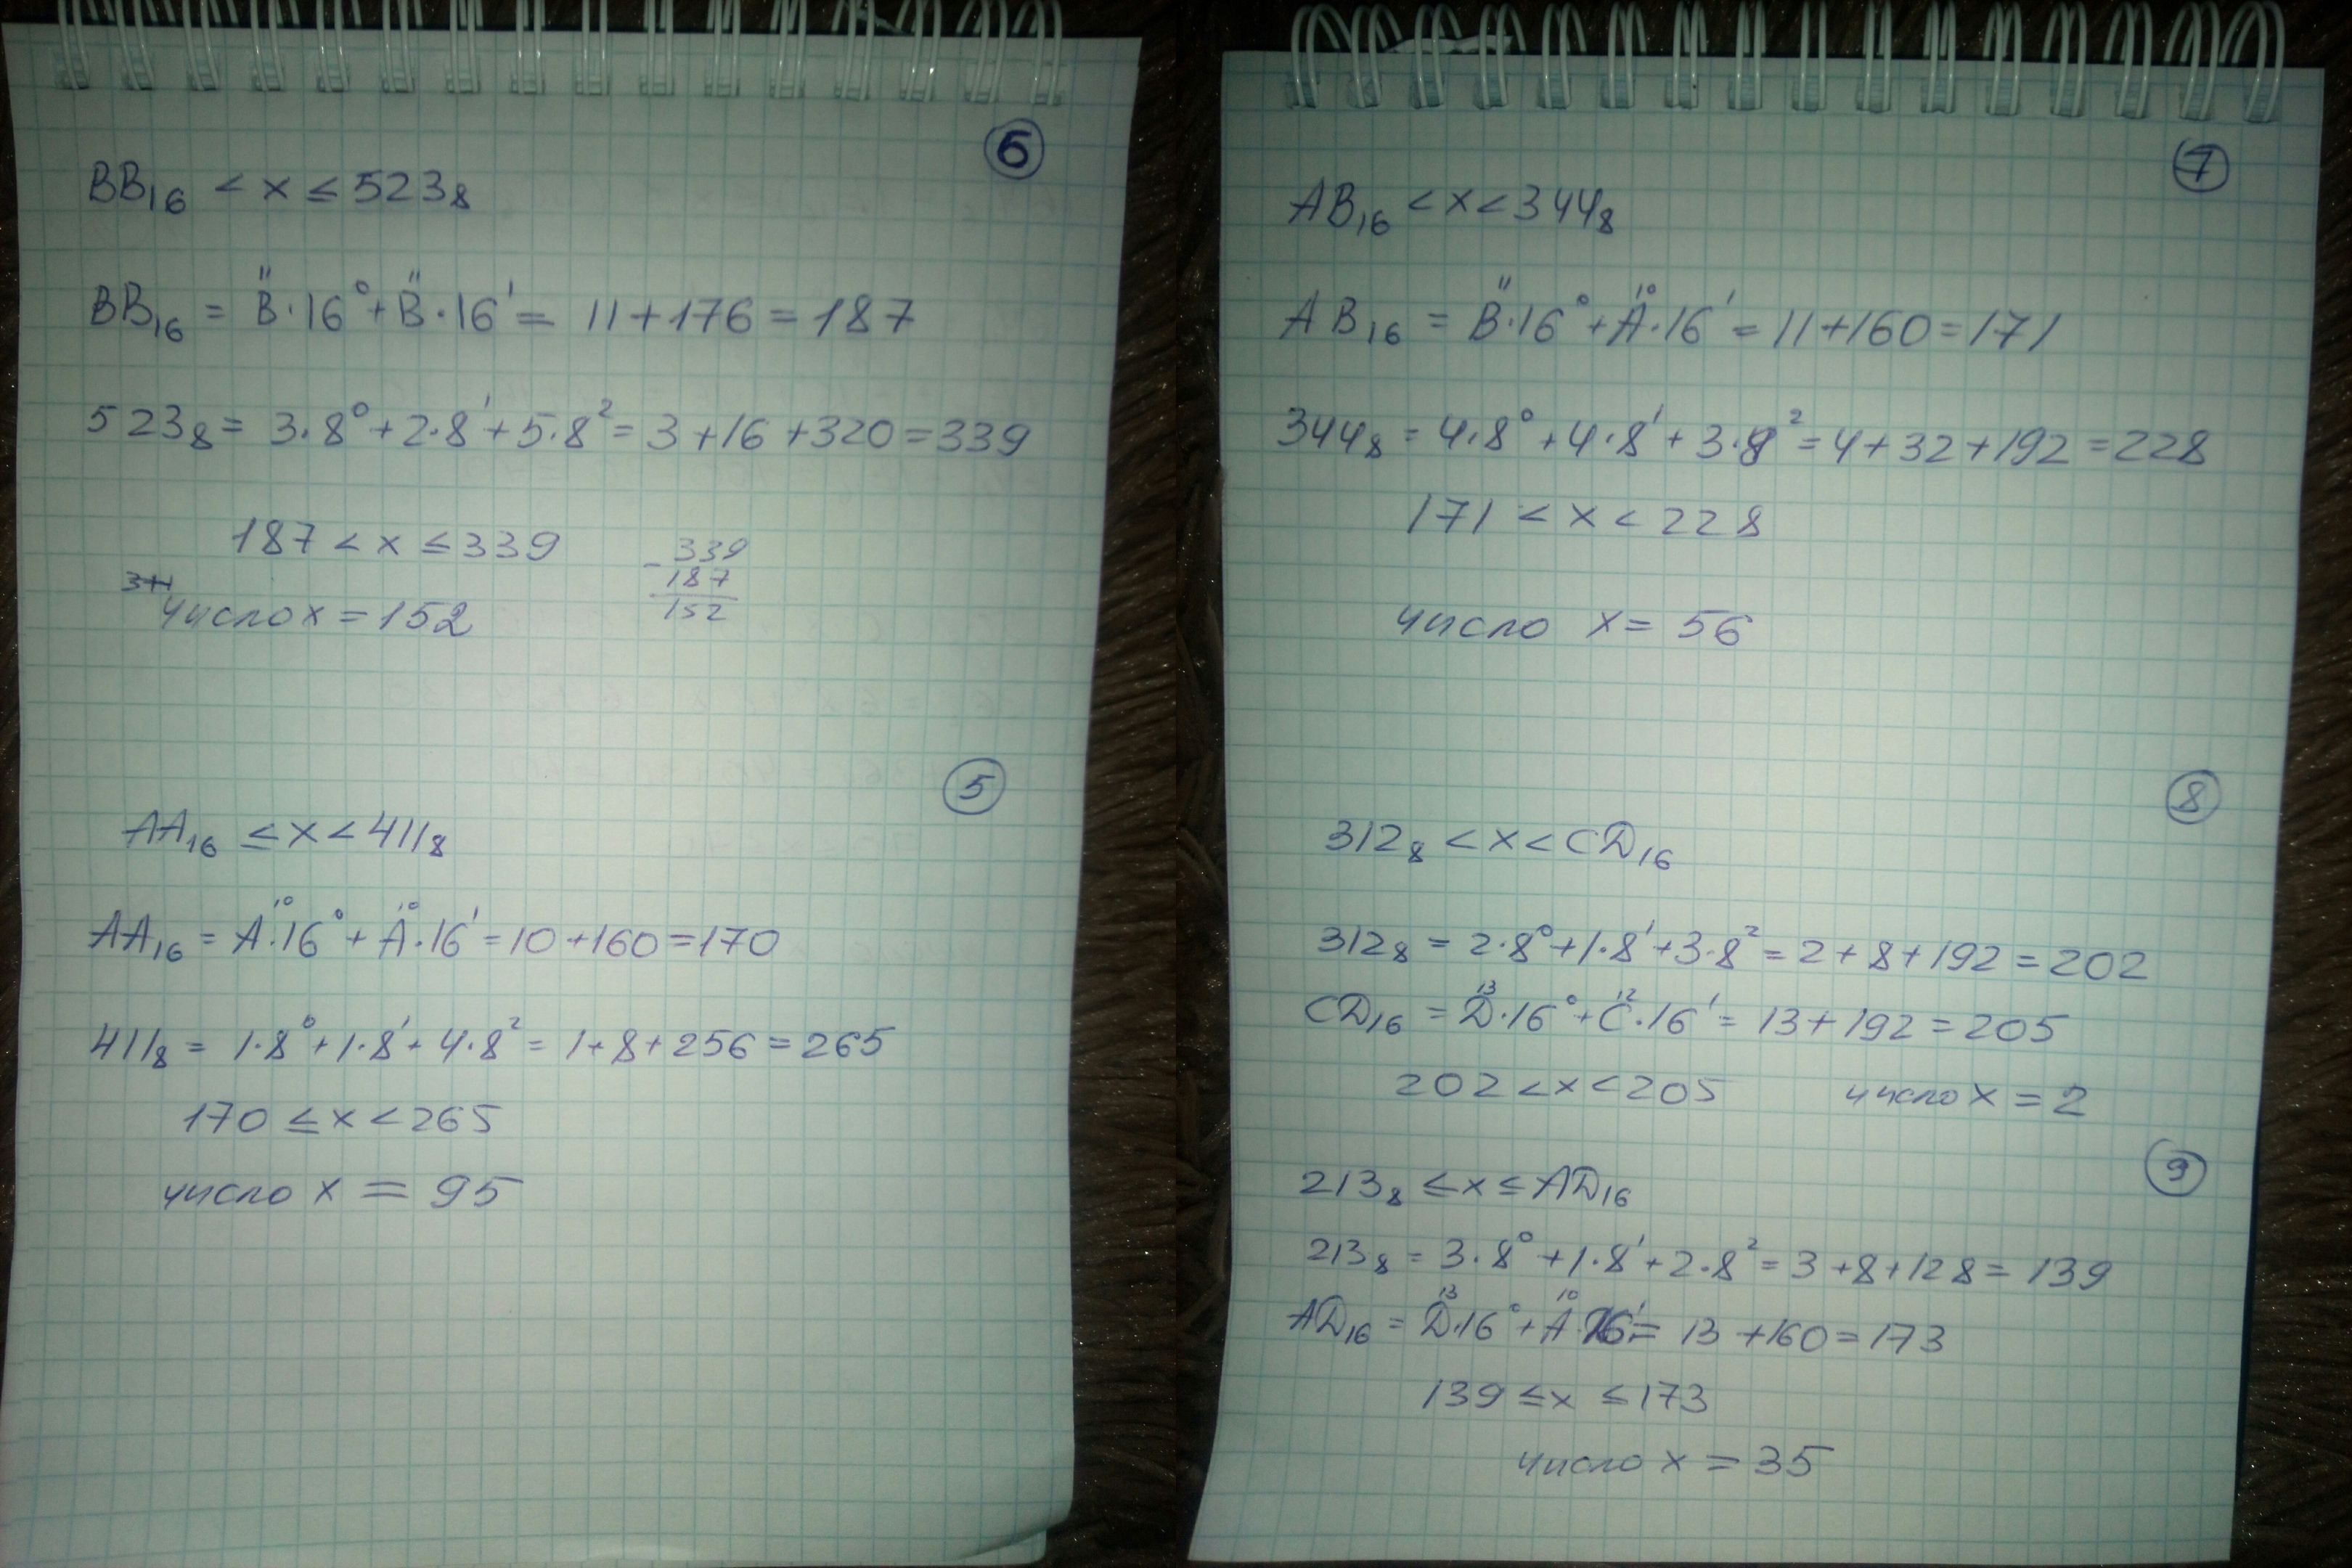 6
BB₁₆ < x ≤ 523₈
BB₁₆ = B¹¹·16⁰+B¹¹·16¹= 11+176=187
523₈= 3·8⁰+2·8¹+5·8²=3+16+320=339
187<x≤339
-339
187
152
число x=152
5
AA₁₆ ≤x<411₈
AA₁₆ = A¹⁰·16⁰ + A¹⁰·16¹=10+160=170
411₈ = 1·8⁰+1·8¹+4·8²= 1+8+256=265
170 ≤x<265
число x = 95
7
AB₁₆ <x<344₈
AB₁₆ = B¹¹·16⁰+A¹⁰·16¹=11+160=171
344₈ = 4·8⁰+4·8¹+3·8²=4+32+192=228
171 < x < 228
число x= 56
8
312₈ <x<CD₁₆
312₈ = 2·8⁰+1·8¹+3·8²=2+8+192=202
CD₁₆ = D¹³·16⁰+C¹²·16¹= 13+192=205
202<x<205 число x=2
9
213₈ ≤x≤AD₁₆
213₈ = 3·8⁰+1·8¹+2·8²=3+8+128=139
AD₁₆ = D¹³·16⁰+A¹⁰·16¹= 13+160=173
139 ≤x ≤173
число x = 35